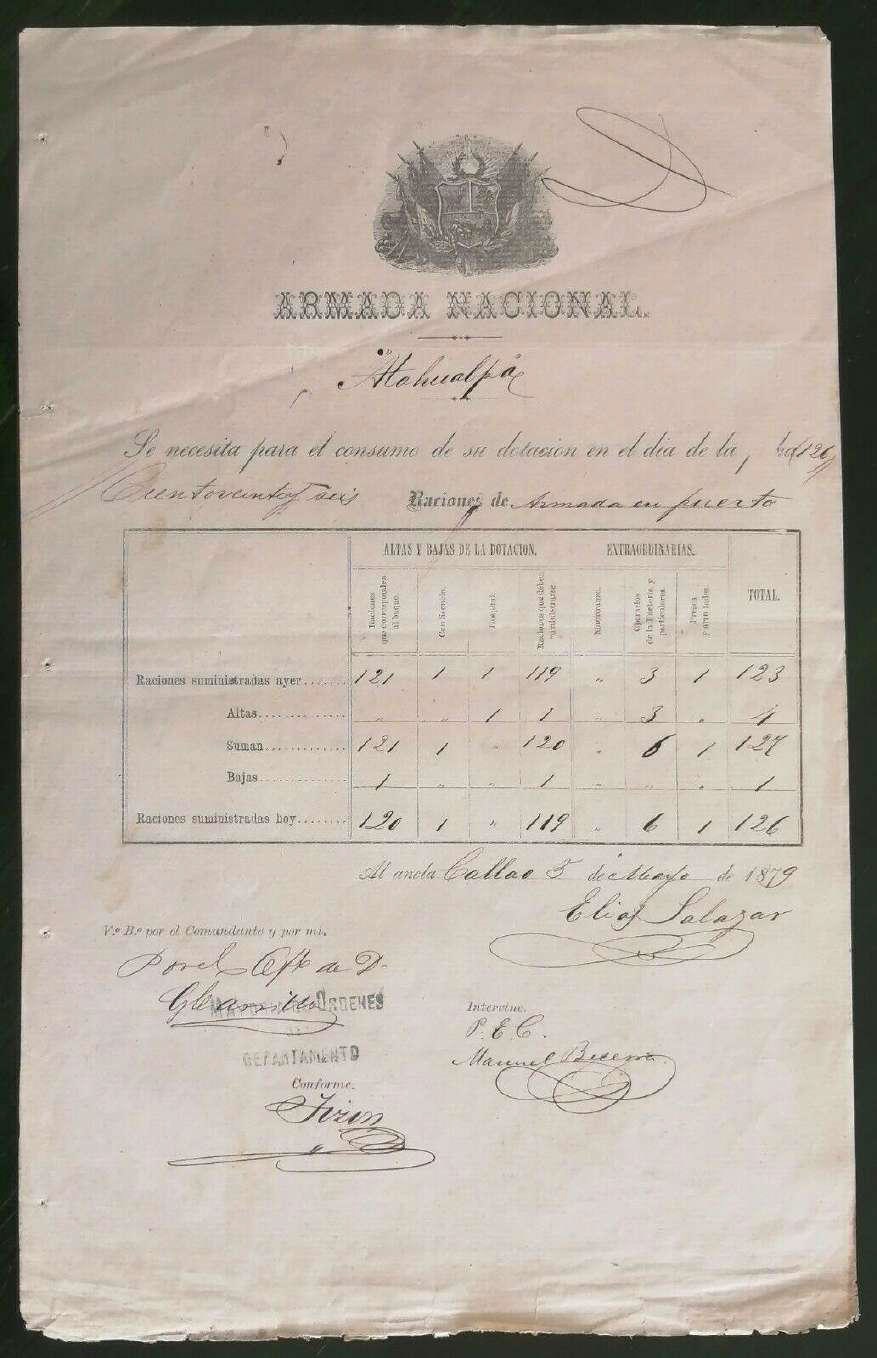 ARMADA NACIONAL.
"Atahualpa"
Se necesita para el consumo de su dotacion en el dia de la
126
Ciento veinte y seis Raciones de Armada en puerto
ALTAS Y BAJAS DE LA DOTACION. EXTRAORDINARIAS. TOTAL.
Raciones que corresponden al buque. Con licencia. Hospital. Raciones que deben suministrarse Operarios de la Factoría y particulares.
Raciones suministradas ayer....... 121 1 1 119 " 3 1 123
Altas............. " " 1 1 " 3 " 4
Suman............ 121 1 " 120 " 6 1 127
Bajas............. 1 " " 1 " " " 1
Raciones suministradas hoy....... 120 1 " 119 " 6 1 126
Al ancla Callao 5 de Mayo de 1879
Elias Salazar
V.º B.º por el Comandante y por mi.
Por el Of de D.
ORDENES
DEPARTAMENTO
Intervine.
P. E. C.
Manuel Becerra
Conforme.
Tizon